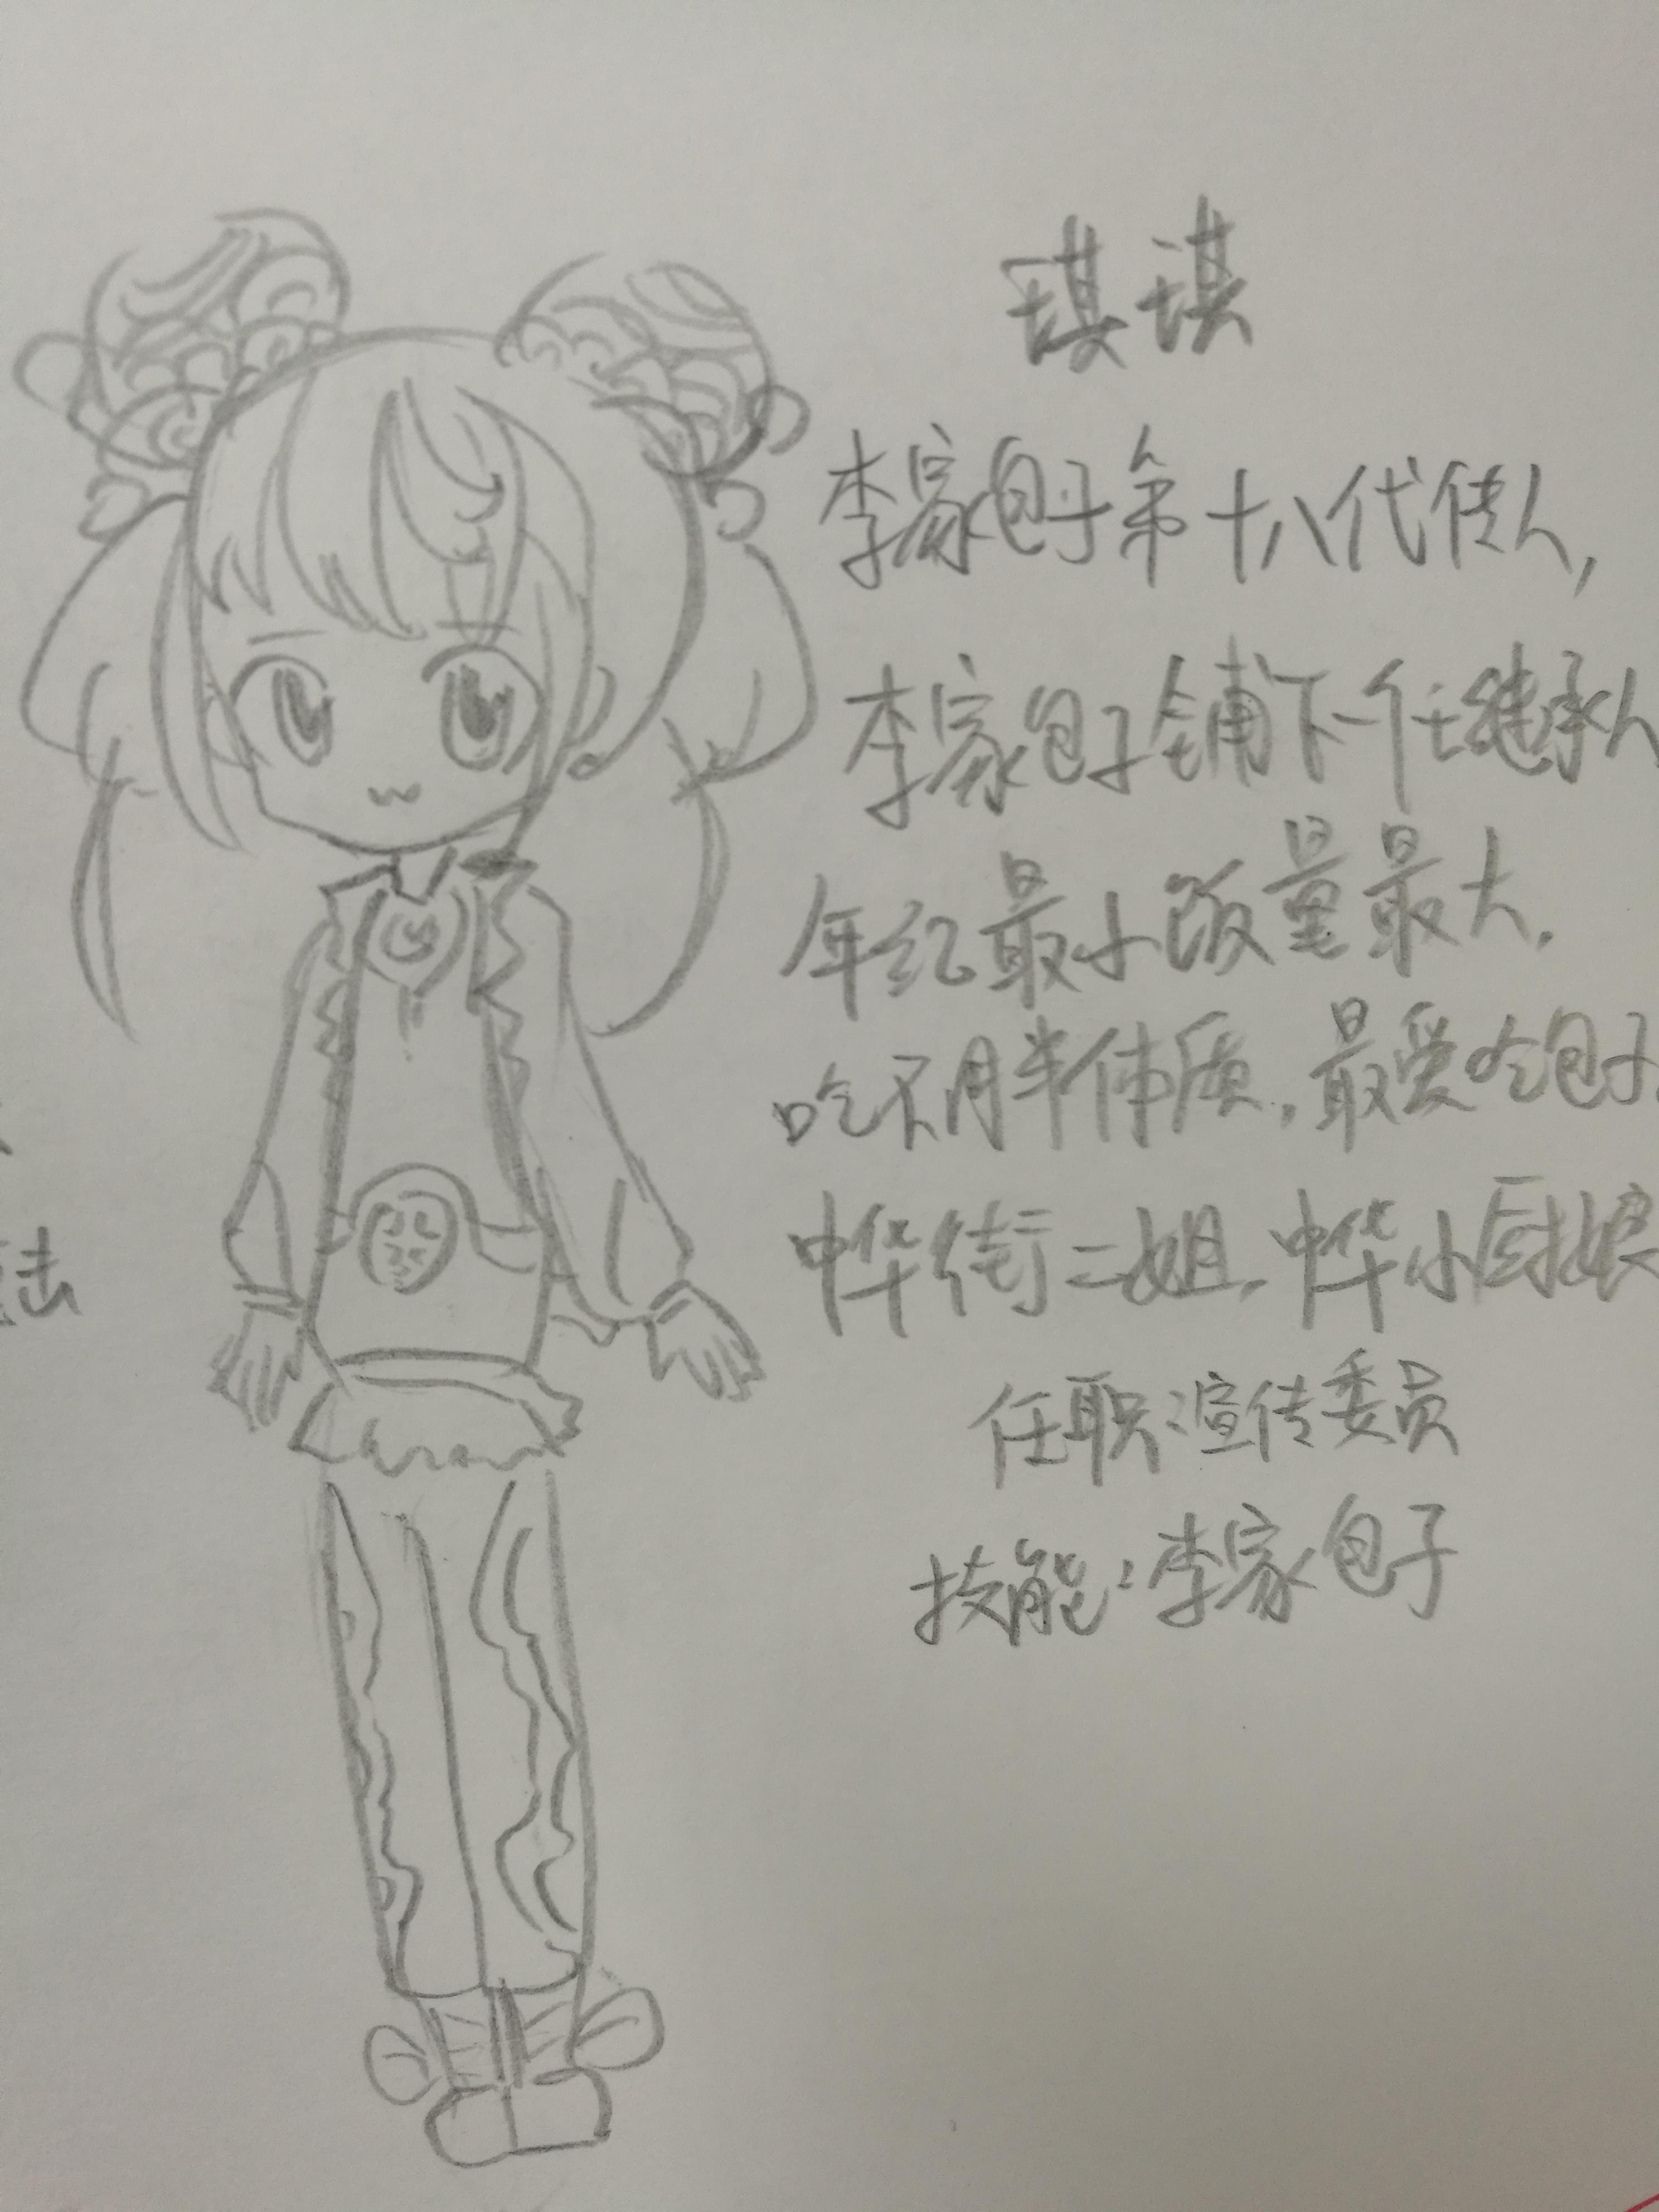 琪琪
李家包子第十八代传人,
李家包子铺下一任继承人
年纪最小饭量最大.
吃不胖体质,最爱吃包子
中华街二姐.中华小厨娘
任职:宣传委员
技能:李家包子
击